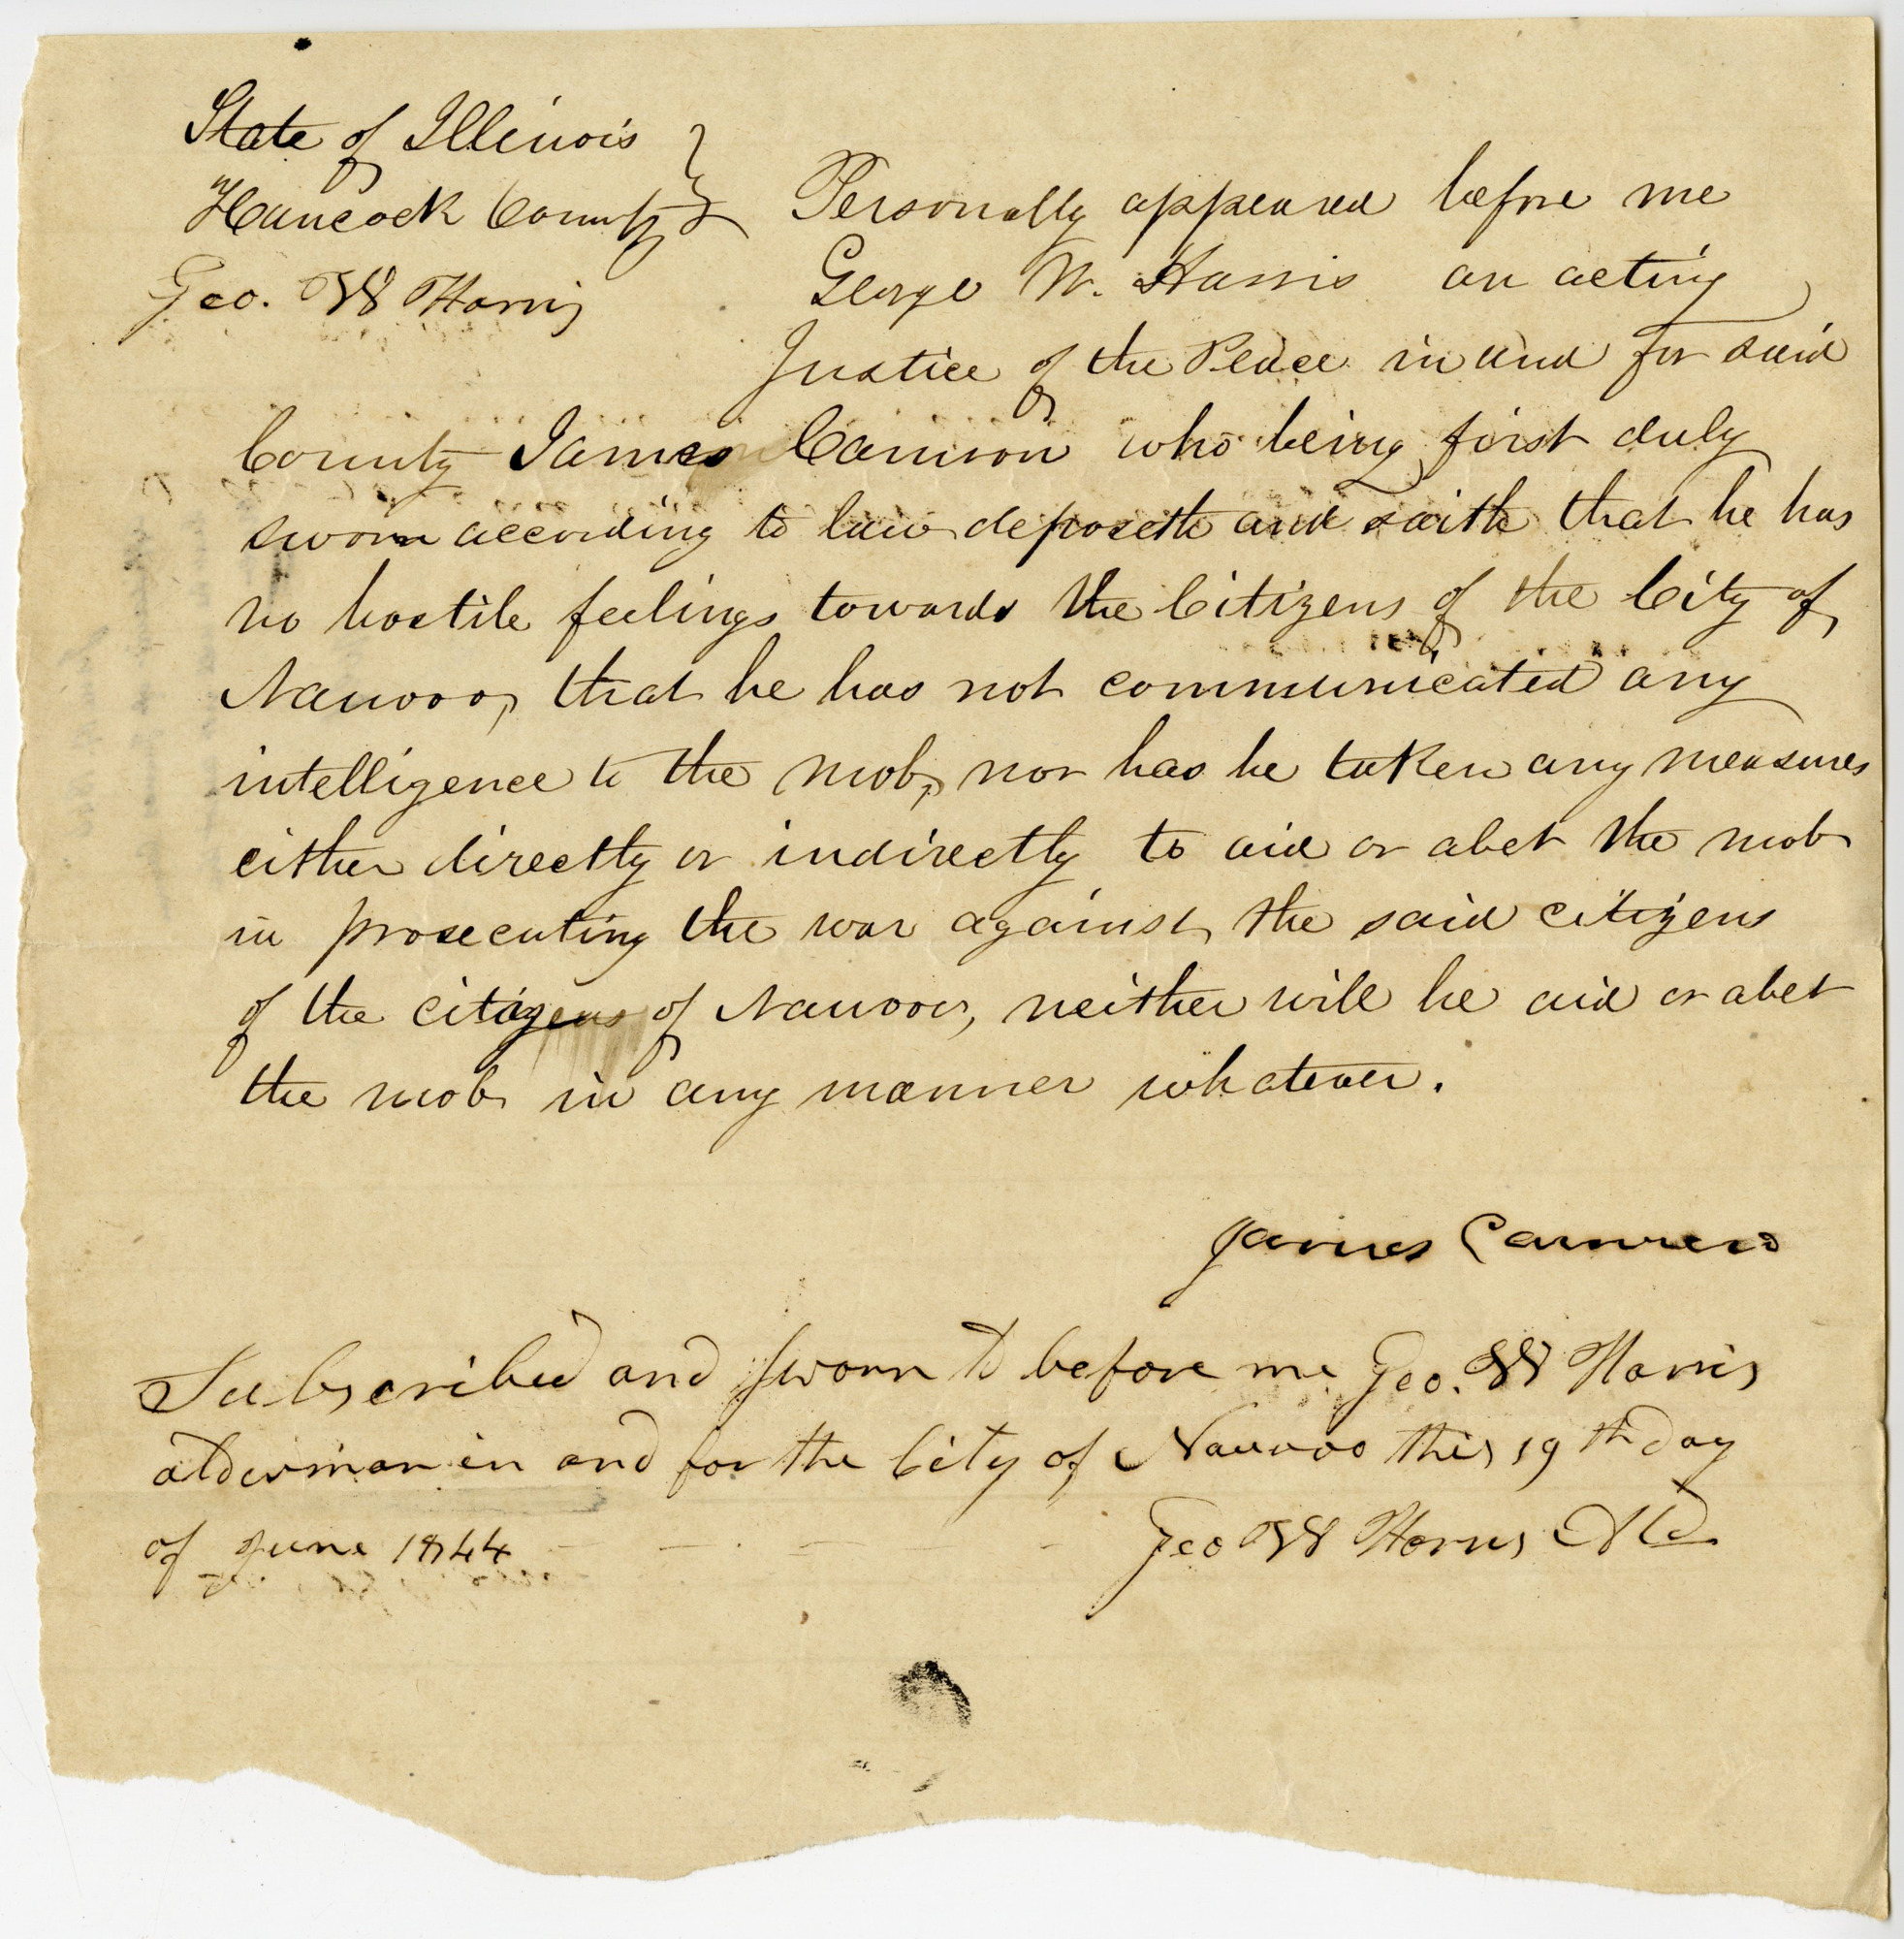 State of Illinois
Hancock County
Geo. W Harris
Personally appeared before me
George W. Harris an acting
Justice of the Peace in and for said
County James Camron who being first duly
sworn according to law deposeth and saith that he has
no hostile feelings towards the Citizens of the City of
Nauvoo, that he has not communicated any
intelligence to the mob, nor has he taken any measures
either directly or indirectly to aid or abet the mob
in prosecuting the war against the said citizens
of the citizens of Nauvoo, neither will he aid or abet
the mob in any manner whatever.
James Camren
Subscribed and sworn to before me Geo. W Harris
alderman in and for the City of Nauvoo this 19th day
of June 1844
Geo W Harris Ald